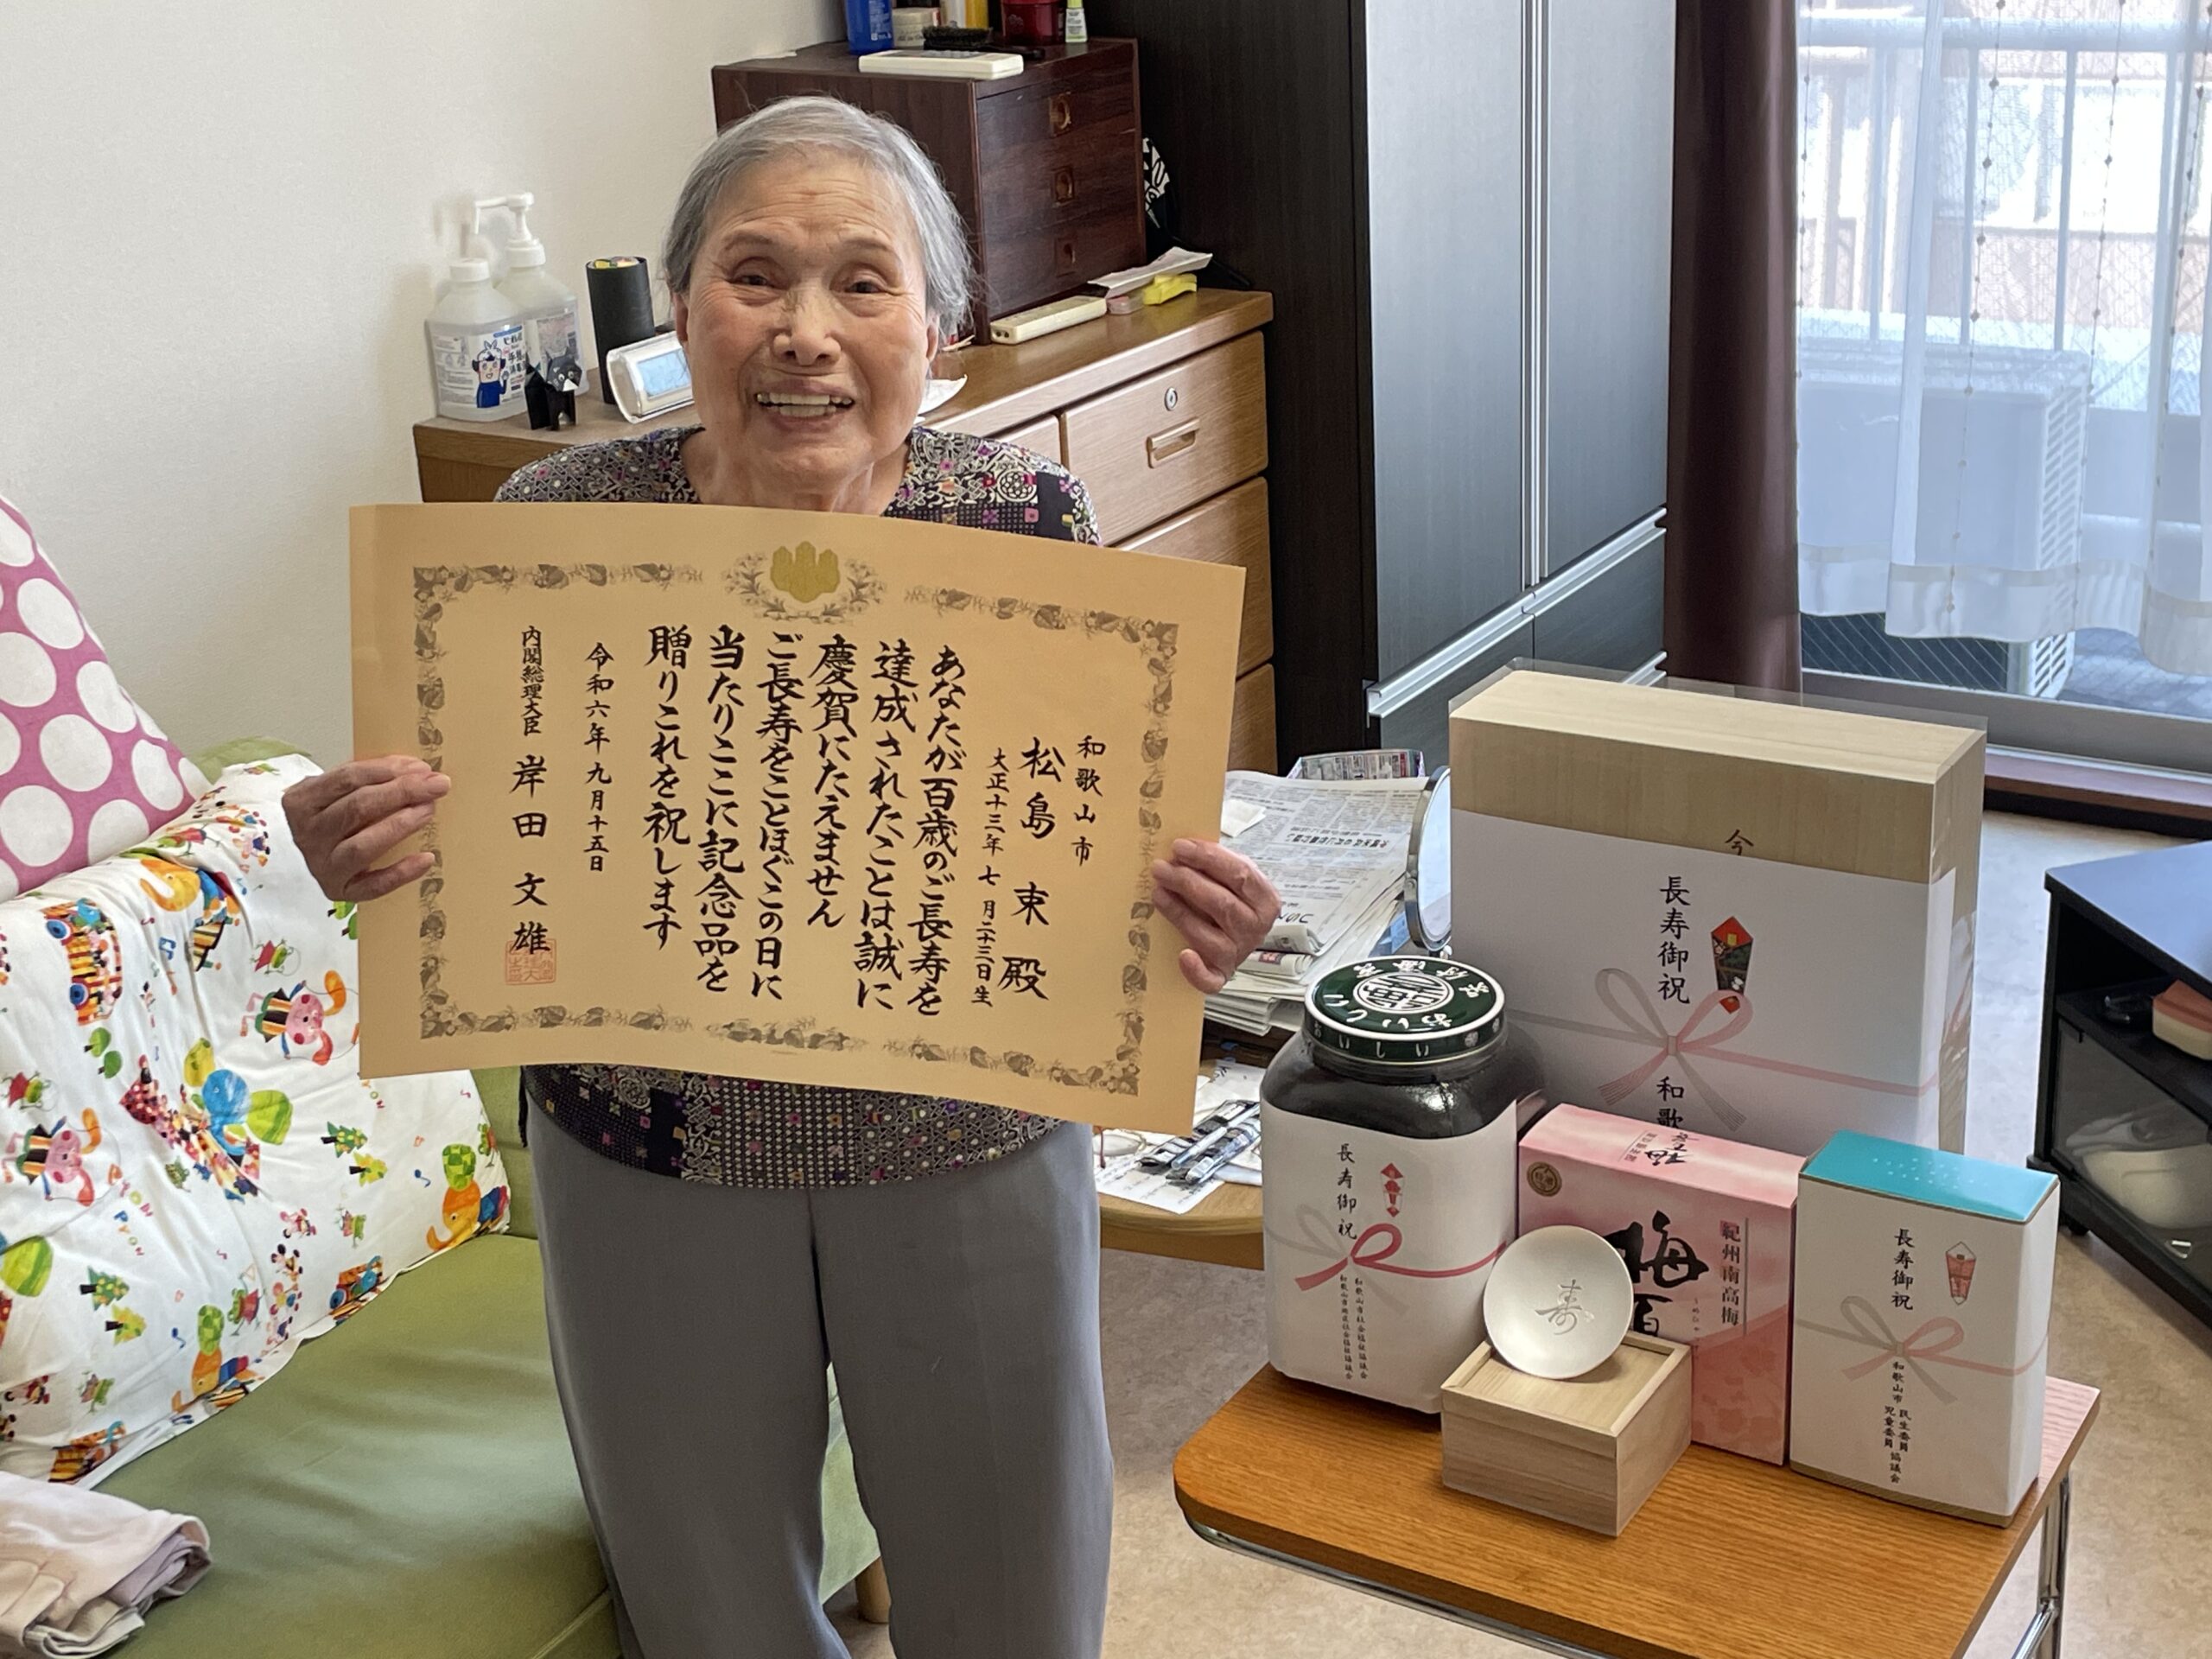 和歌山市
松島 束 殿
大正十三年 七月二十三日生
あなたが百歳のご長寿を
達成されたことは誠に
慶賀にたえません
ご長寿をことほぐこの日に
当たりここに記念品を
贈りこれを祝します
令和六年九月十五日
内閣総理大臣 岸田文雄
今
長寿御祝
和歌
おいしい
長寿御祝
和歌山市社会福祉協議会
和歌山市地区社会福祉協議会
寿
梅
紀州南高梅
長寿御祝
和歌山市 民生委員 児童委員 協議会